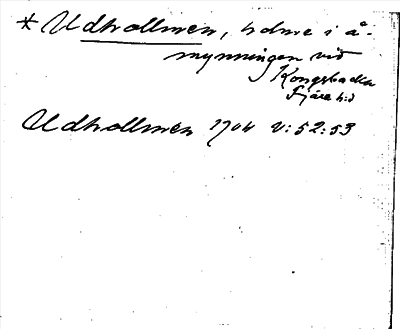 * Udhollmen, holme i å-
mynningen vid
Kongsbacka
Fjäre h:d
Udhollmen 1704 V: 52:53